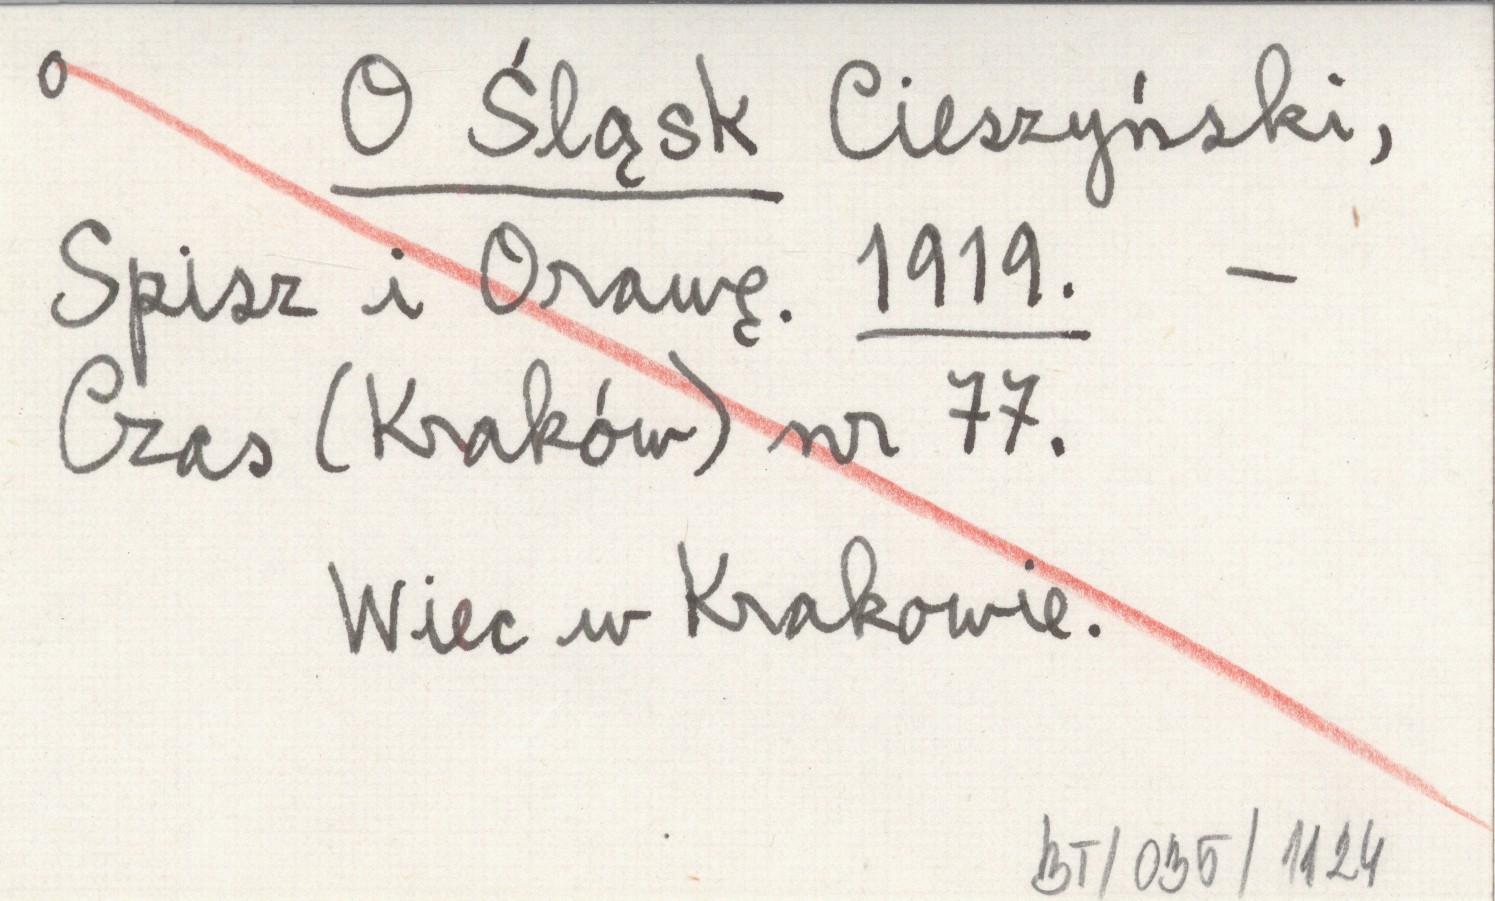 O O Śląsk Cieszyński,
Spisz i Orawę. 1919. –
Czas (Kraków) nr 77.
Wiec w Krakowie.
BT/035/1124